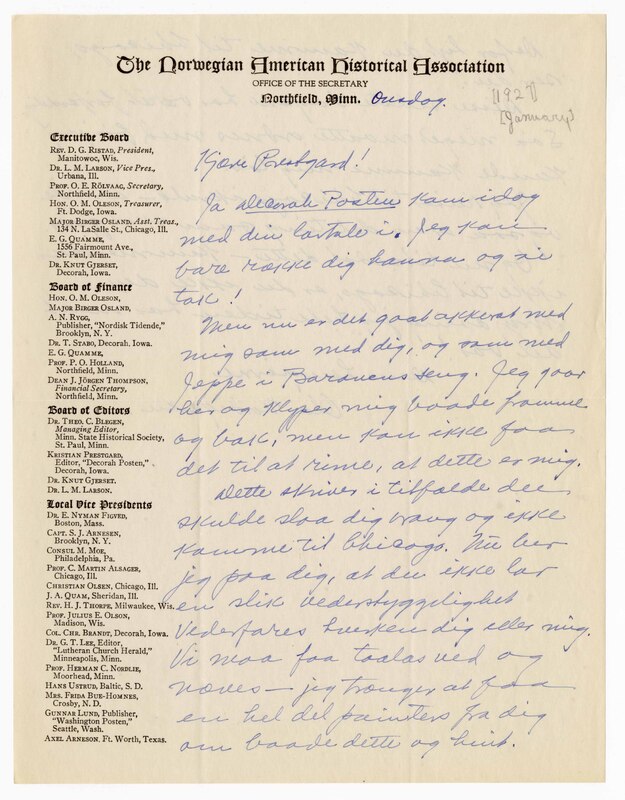 The Norwegian American Historical Association
OFFICE OF THE SECRETARY
Northfield, Minn. Onsdag.
[1927]
[January]
Executive Board
REV. D. G. RISTAD, President,
Manitowoc, Wis.
DR. L. M. LARSON, Vice Pres.,
Urbana, Ill.
PROF. O. E. RÖLVAAG, Secretary,
Northfield, Minn.
HON. O. M. OLESON, Treasurer,
Ft. Dodge, Iowa.
MAJOR BIRGER OSLAND, Asst. Treas.,
134 N. LaSalle St., Chicago, Ill.
E. G. QUAMME,
1556 Fairmount Ave.,
St. Paul, Minn.
DR. KNUT GJERSET,
Decorah, Iowa.
Board of Finance
HON. O. M. OLESON,
MAJOR BIRGER OSLAND,
A. N. RYGG,
Publisher, "Nordisk Tidende,"
Brooklyn, N. Y.
DR. T. STABO, Decorah, Iowa.
E. G. QUAMME,
PROF. P. O. HOLLAND,
Northfield, Minn.
DEAN J. JÖRGEN THOMPSON,
Financial Secretary,
Northfield, Minn.
Board of Editors
DR. THEO. C. BLEGEN,
Managing Editor,
Minn. State Historical Society,
St. Paul, Minn.
KRISTIAN PRESTGARD,
Editor, "Decorah Posten,"
Decorah, Iowa.
DR. KNUT GJERSET.
DR. L. M. LARSON.
Local Vice Presidents
DR. E. NYMAN FIGVED,
Boston, Mass.
CAPT. S. J. ARNESEN,
Brooklyn, N. Y.
CONSUL M. MOE,
Philadelphia, Pa.
PROF. C. MARTIN ALSAGER,
Chicago, Ill.
CHRISTIAN OLSEN, Chicago, Ill.
J. A. QUAM, Sheridan, Ill.
REV. H. J. THORPE, Milwaukee, Wis.
PROF. JULIUS E. OLSON,
Madison, Wis.
COL. CHR. BRANDT, Decorah, Iowa.
DR. G. T. LEE, Editor,
"Lutheran Church Herald,"
Minneapolis, Minn.
PROF. HERMAN C. NORDLIE,
Moorhead, Minn.
HANS USTRUD, Baltic, S. D.
MRS. FRIDA BUE-HOMNES,
Crosby, N. D.
GUNNAR LUND, Publisher,
"Washington Posten,"
Seattle, Wash.
AXEL ARNESON. Ft. Worth, Texas.
Kjære Prestgard!
Ja Decorah Posten kom idag
med din i. Jeg kan
bare række dig haanna og si
tak!
Men nu er det gaat akkurat med
mig som med dig, og som med
Jeppe i Baronens seng. Jeg gaar
her og klyper mig baade framme
og bak, men kan ikke faa
det til at rime, at dette er mig.
Dette skriver i tilfælde det
skulde slaa dig vrang og ikke
komme til Chicago. Nu ber
jeg paa dig, at du ikke lar
en slik vederstyggelighet
vederfares hverken dig eller mig.
Vi maa faa taalas ved og
næves — jeg trænger at faa
en hel del pointers fra dig
om baade dette og hint.